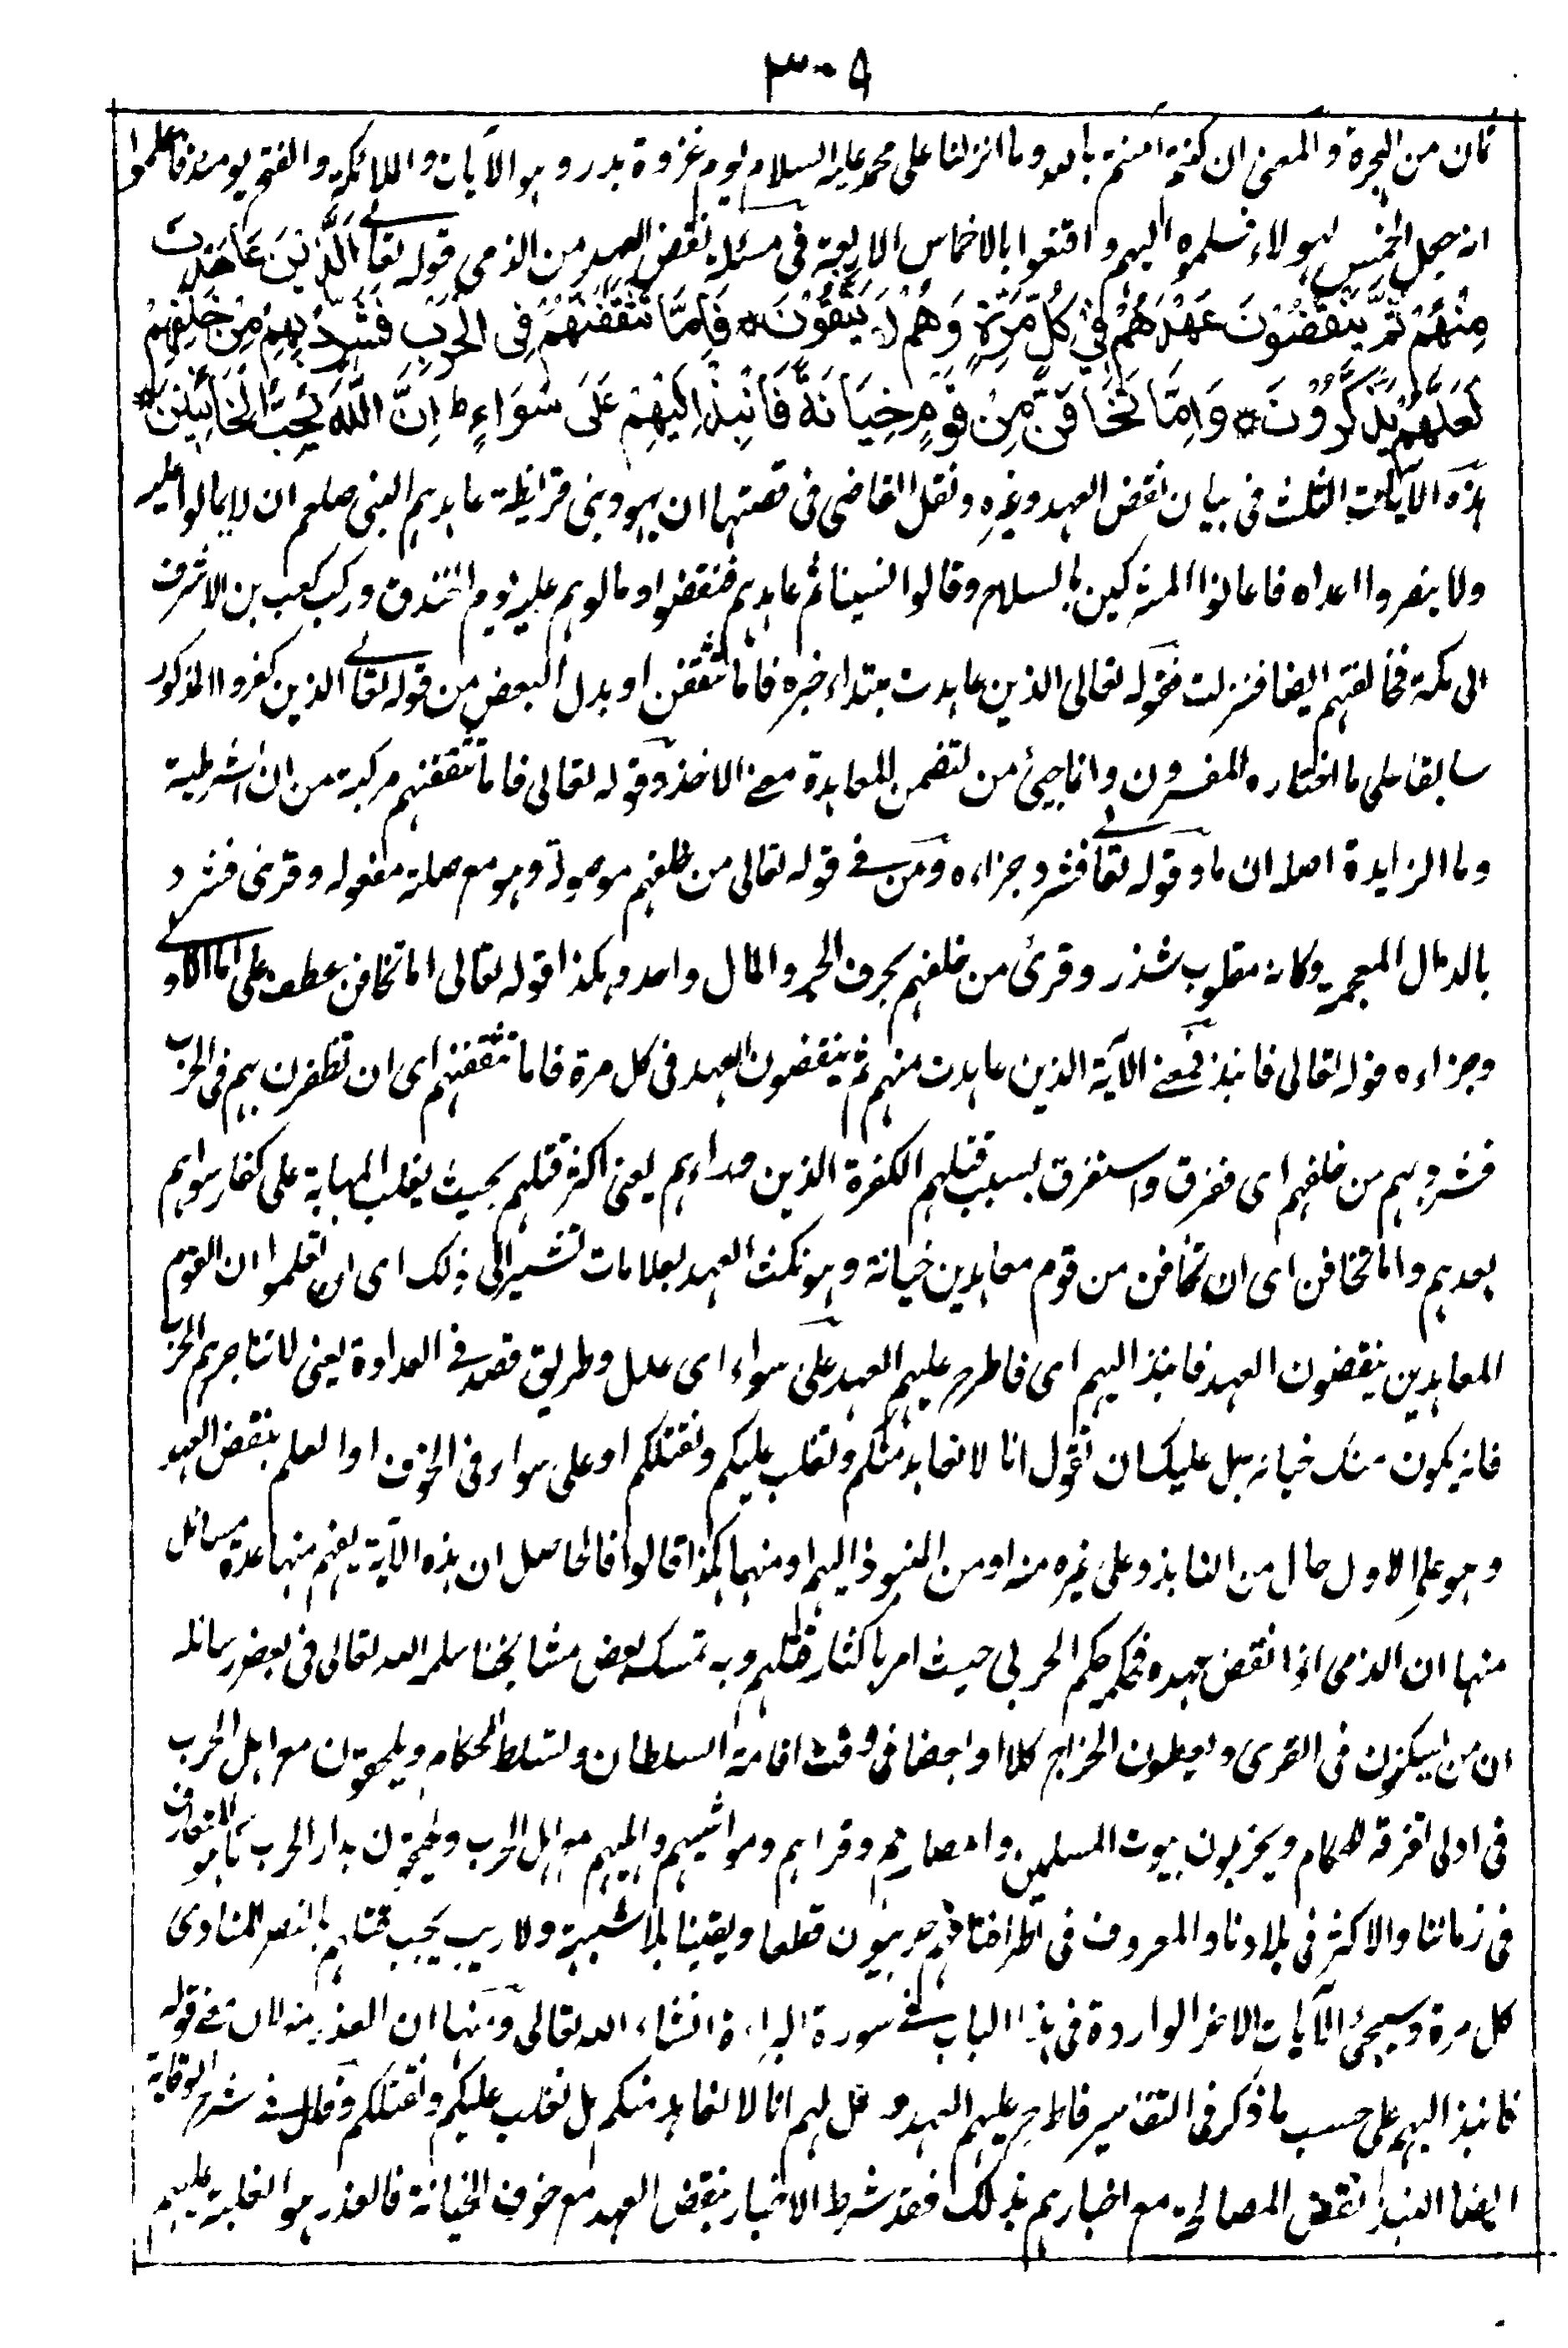 ٣٠٨
كان من الهجرة والمعنى ان كنتم آمنتم بالله وما انزلنا على محمد عليه السلام يوم غزوة بدر وهو الآيات والملائكة والفتح يومئذ فاعلموا
انه جعل الخمس لهولاء فسلموه اليهم واقنعوا بالاخماس الاربعة فى مسئلة نقض العهد من الذمى قوله تعالى اَلَّذِيْنَ عَاهَدْتَّ
مِنْهُمْ ثُمَّ يَنْقُضُوْنَ عَهْدَهُمْ فِيْ كُلِّ مَرَّةٍ وَهُمْ لَا يَتَّقُوْنَ * فَاِمَّا تَثْقَفَنَّهُمْ فِى الْحَرْبِ فَشَرِّدْ بِهِمْ مِنْ خَلْفَهُمْ
لَعَلَّهُمْ يَذَّكَّرُوْنَ * وَاِمَّا تَخَافَنَّ مِنْ قَوْمٍ خِيَانَةً فَانْبِذْ اِلَيْهِمْ عَلَى سَوَاءٍ ط اِنَّ اللّٰهَ لَا يُحِبُّ الْخَائِنِيْنَ *
هذه الآيات الثلث فى بيان نقض العهد وغيره ونقل القاضى فى قصتها ان يهود بنى قريظة عاهدهم النبى صلعم ان لا يمالوا عليه
ولا ينصروا اعداه فاعانوا المشركين بالسلاح وقالوا نسينا ثم عاهدهم فنقضوا ومالوهم عليه يوم الخندق وركب كعب بن الاشرف
الى مكة فخالفهم ايضا فنزلت فقوله تعالى الذين عاهدت مبتداء خبره فاما تثقفن او بدل البعض من قوله تعالى الذين كفروا المذكور
سابقا على ما اختاره المفسرون وانما جئ من لتضمن المعاهدة معنى الاخذ وقوله تعالى فاما تثقفنهم مركبة من ان الشرطية
وما الزايدة اصله ان ما وقوله تعالى فشرد جزاءه ومن فى قوله تعالى من خلفهم موصولة وهو مع صلته مفعوله وقرئ فشرذ
بالذال المعجمة وكانه مقلوب شذر وقرئ من خلفهم بحرف الجر والمال واحد وهكذا قوله تعالى اما تخافن عطف على اما الاولى
وجزاءه قوله تعالى فانبذ فمعنى الآية الذين عاهدت منهم ثم ينقضون العهد فى كل مرة فاما تثقفنهم اى ان تظفرن بهم فى الحرب
فشرد بهم من خلفهم اى ففرق واستفرق بسبب قتلهم الكفرة الذين وراءهم يعنى اكثر قتلهم بحيث يغلب المهابة على كفار سواهم
بعدهم واما تخافن اى ان تخافن من قوم معاهدين خيانة وهو نكث العهد بعلامات تشير الى ذلك اى ان تعلموا ان القوم
المعاهدين ينقضون العهد فانبذ اليهم اى فاطرح عليهم العهد على سواء اى عدل وطريق قصد فى العداوة يعنى لا تناجزهم الحرب
فانه يكون منك خيانة بل عليك ان تقول انا لا نعاهد منكم ونغلب عليكم ونقتلكم او على سواء فى الخوف او العلم بنقض العهد
وهو على الاول حال من النابذ وعلى غيره منه او من المنبوذ اليهم او منهما هكذا قالوا فالحاصل ان هذه الآية يفهم منها عدة مسائل
منها ان الذمى اذا نقض عهده فحكمه حكم الحربى حيث امر باكثار قتلهم وبه تمسك بعض مشايخنا سلمه الله تعالى فى بعض رسائله
ان من يسكنون فى القرى ويعطون الخراج كلا او بعضا فى وقت اقامة السلطان وتسلط الحكام ويلحقون مع اهل الحرب
فى ادنى تفرقة الحكام ويخربون بيوت المسلمين وامصارهم وقراهم ومواشيهم واليهم مع اهل الحرب ويلحقون بدار الحرب كما هو المتعارف
فى زماننا والاكثر فى بلادنا والمعروف فى اطرافنا فهم حربيون قطعا ويقينا بلا شبهة ولا ريب يجب قتلهم بالنص المنادى
كل مرة وسيجئ الآيات الاخر الواردة فى هذا الباب فى سورة البراءة انشاء الله تعالى ومنها ان العذر منه لان معنى قوله
فانبذ اليهم على حسب ما ذكر فى التفاسير فاطرح عليهم العهد وقل لهم انا لا نعاهد منكم بل نغلب عليكم ونقتلكم وقال فى شرح الوقاية
ايضا النبذ نقض المصالحة مع اخبارهم بذلك فقد شرط الاخبار بنقض العهد مع خوف الخيانة فالعذر هو الغلبة عليهم